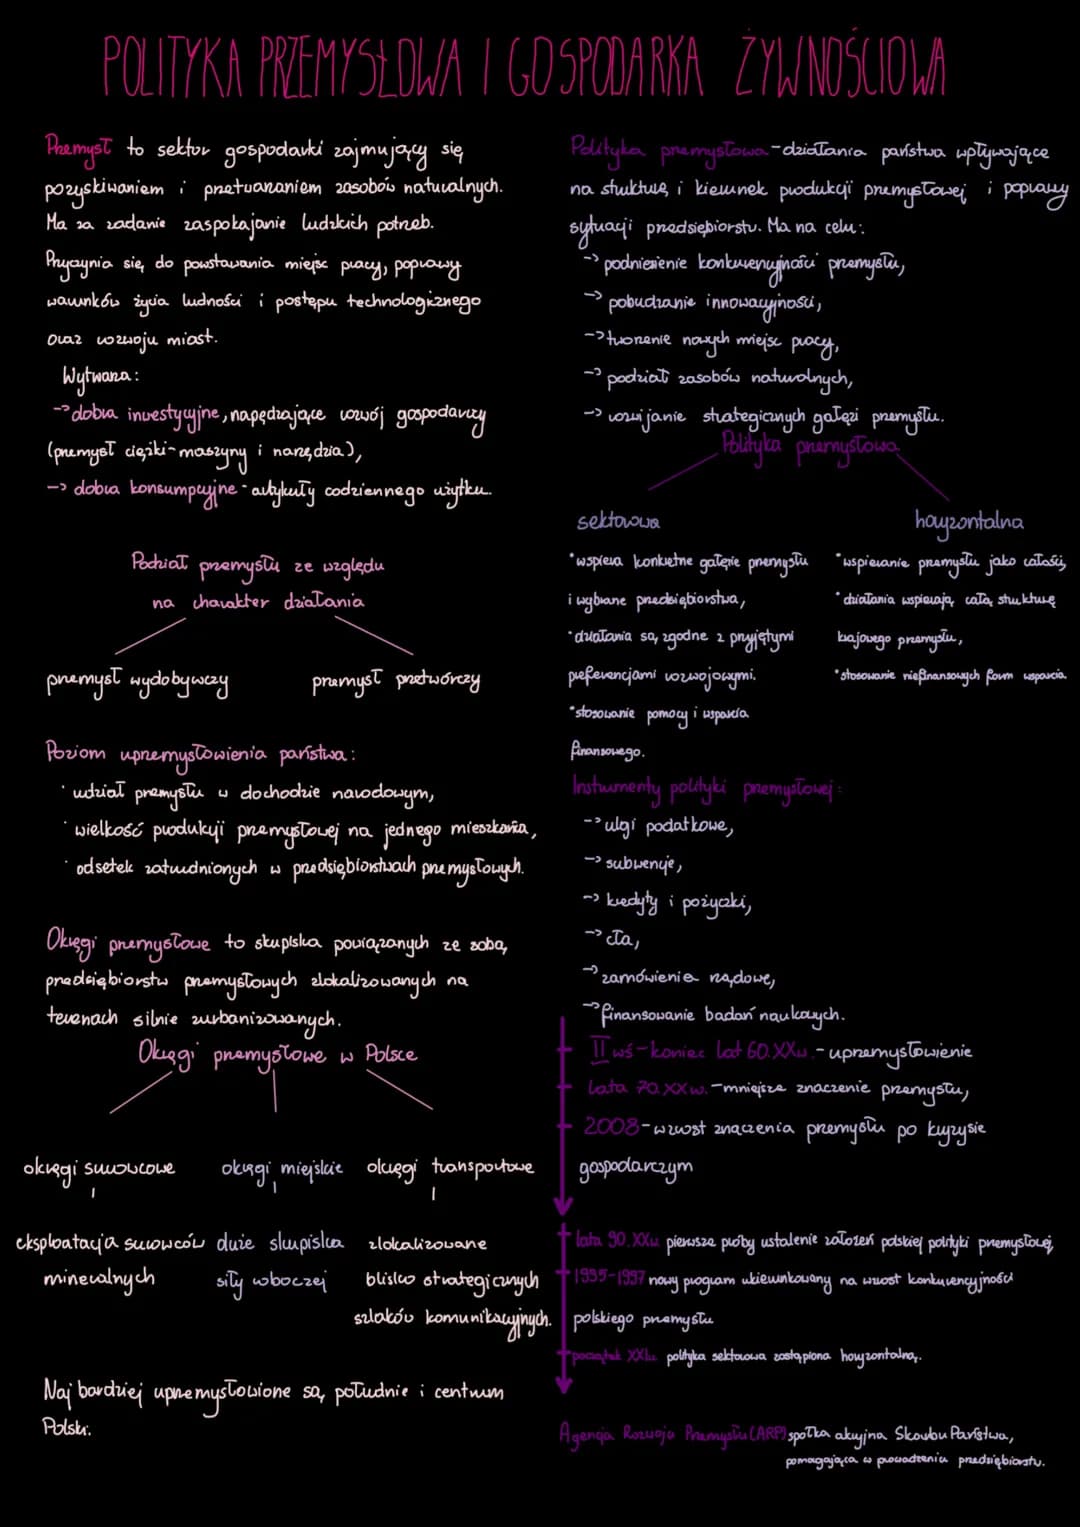 POLITYKA PRZEMYSŁOWA I GOSPODARKA ŻYWNOŚCIOWA
Przemysł to sektor gospodarki zajmujący się
pozyskiwaniem i przetwarzaniem zasobów naturalnych.
Ma za zadanie zaspokajanie ludzkich potrzeb.
Przyczynia się do powstawania miejsc pracy, poprawy
warunków życia ludności i postępu technologicznego
oraz rozwoju miast.
Wytwarza:
-> dobra inwestycyjne, napędzające rozwój gospodarczy
(przemysł ciężki-maszyny i narzędzia),
-> dobra konsumpcyjne - artykuły codziennego użytku.
Podział przemysłu ze względu
na charakter działania
przemysł wydobywczy
przemysł przetwórczy
Poziom uprzemysłowienia państwa:
· udział przemysłu w dochodzie narodowym,
· wielkość produkcji przemysłowej na jednego mieszkańca,
· odsetek zatrudnionych w przedsiębiorstwach przemysłowych.
Okręgi przemysłowe to skupiska powiązanych ze sobą
przedsiębiorstw przemysłowych zlokalizowanych na
terenach silnie zurbanizowanych.
Okręgi przemysłowe w Polsce
okręgi surowcowe
eksploatacja surowców
mineralnych
okręgi miejskie
duże skupiska
siły roboczej
okręgi transportowe
zlokalizowane
blisko strategicznych
szlaków komunikacyjnych.
Najbardziej uprzemysłowione są południe i centrum
Polski.
Polityka przemysłowa - działania państwa wpływające
na strukturę i kierunek produkcji przemysłowej i poprawy
sytuacji przedsiębiorstw. Ma na celu:
-> podniesienie konkurencyjności przemysłu,
-> pobudzanie innowacyjności,
-> tworzenie nowych miejsc pracy,
-> podział zasobów naturalnych,
-> rozwijanie strategicznych gałęzi przemysłu.
Polityka przemysłowa
sektorowa
*wspiera konkretne gałęzie przemysłu
i wybrane przedsiębiorstwa,
*działania są zgodne z przyjętymi
preferencjami rozwojowymi.
*stosowanie pomocy i wsparcia
finansowego.
horyzontalna
*wspieranie przemysłu jako całości,
*działania wspierają całą strukturę
krajowego przemysłu,
*stosowanie niefinansowych form wsparcia.
Instrumenty polityki przemysłowej:
-> ulgi podatkowe,
-> subwencje,
-> kredyty i pożyczki,
-> cła,
-> zamówienia rządowe,
-> finansowanie badań naukowych.
II wś - koniec lat 60.XXw. - uprzemysłowienie
Lata 70.XXw. - mniejsze znaczenie przemysłu,
2008 - wzrost znaczenia przemysłu po kryzysie
gospodarczym
lata 90.XXw pierwsze próby ustalenie założeń polskiej polityki przemysłowej,
1995-1997 nowy program ukierunkowany na wzrost konkurencyjności
polskiego przemysłu
początek XXIw. polityka sektorowa zastąpiona horyzontalną.
Agencja Rozwoju Przemysłu (ARP) spółka akcyjna Skarbu Państwa,
pomagająca w prowadzeniu przedsiębiorstw.